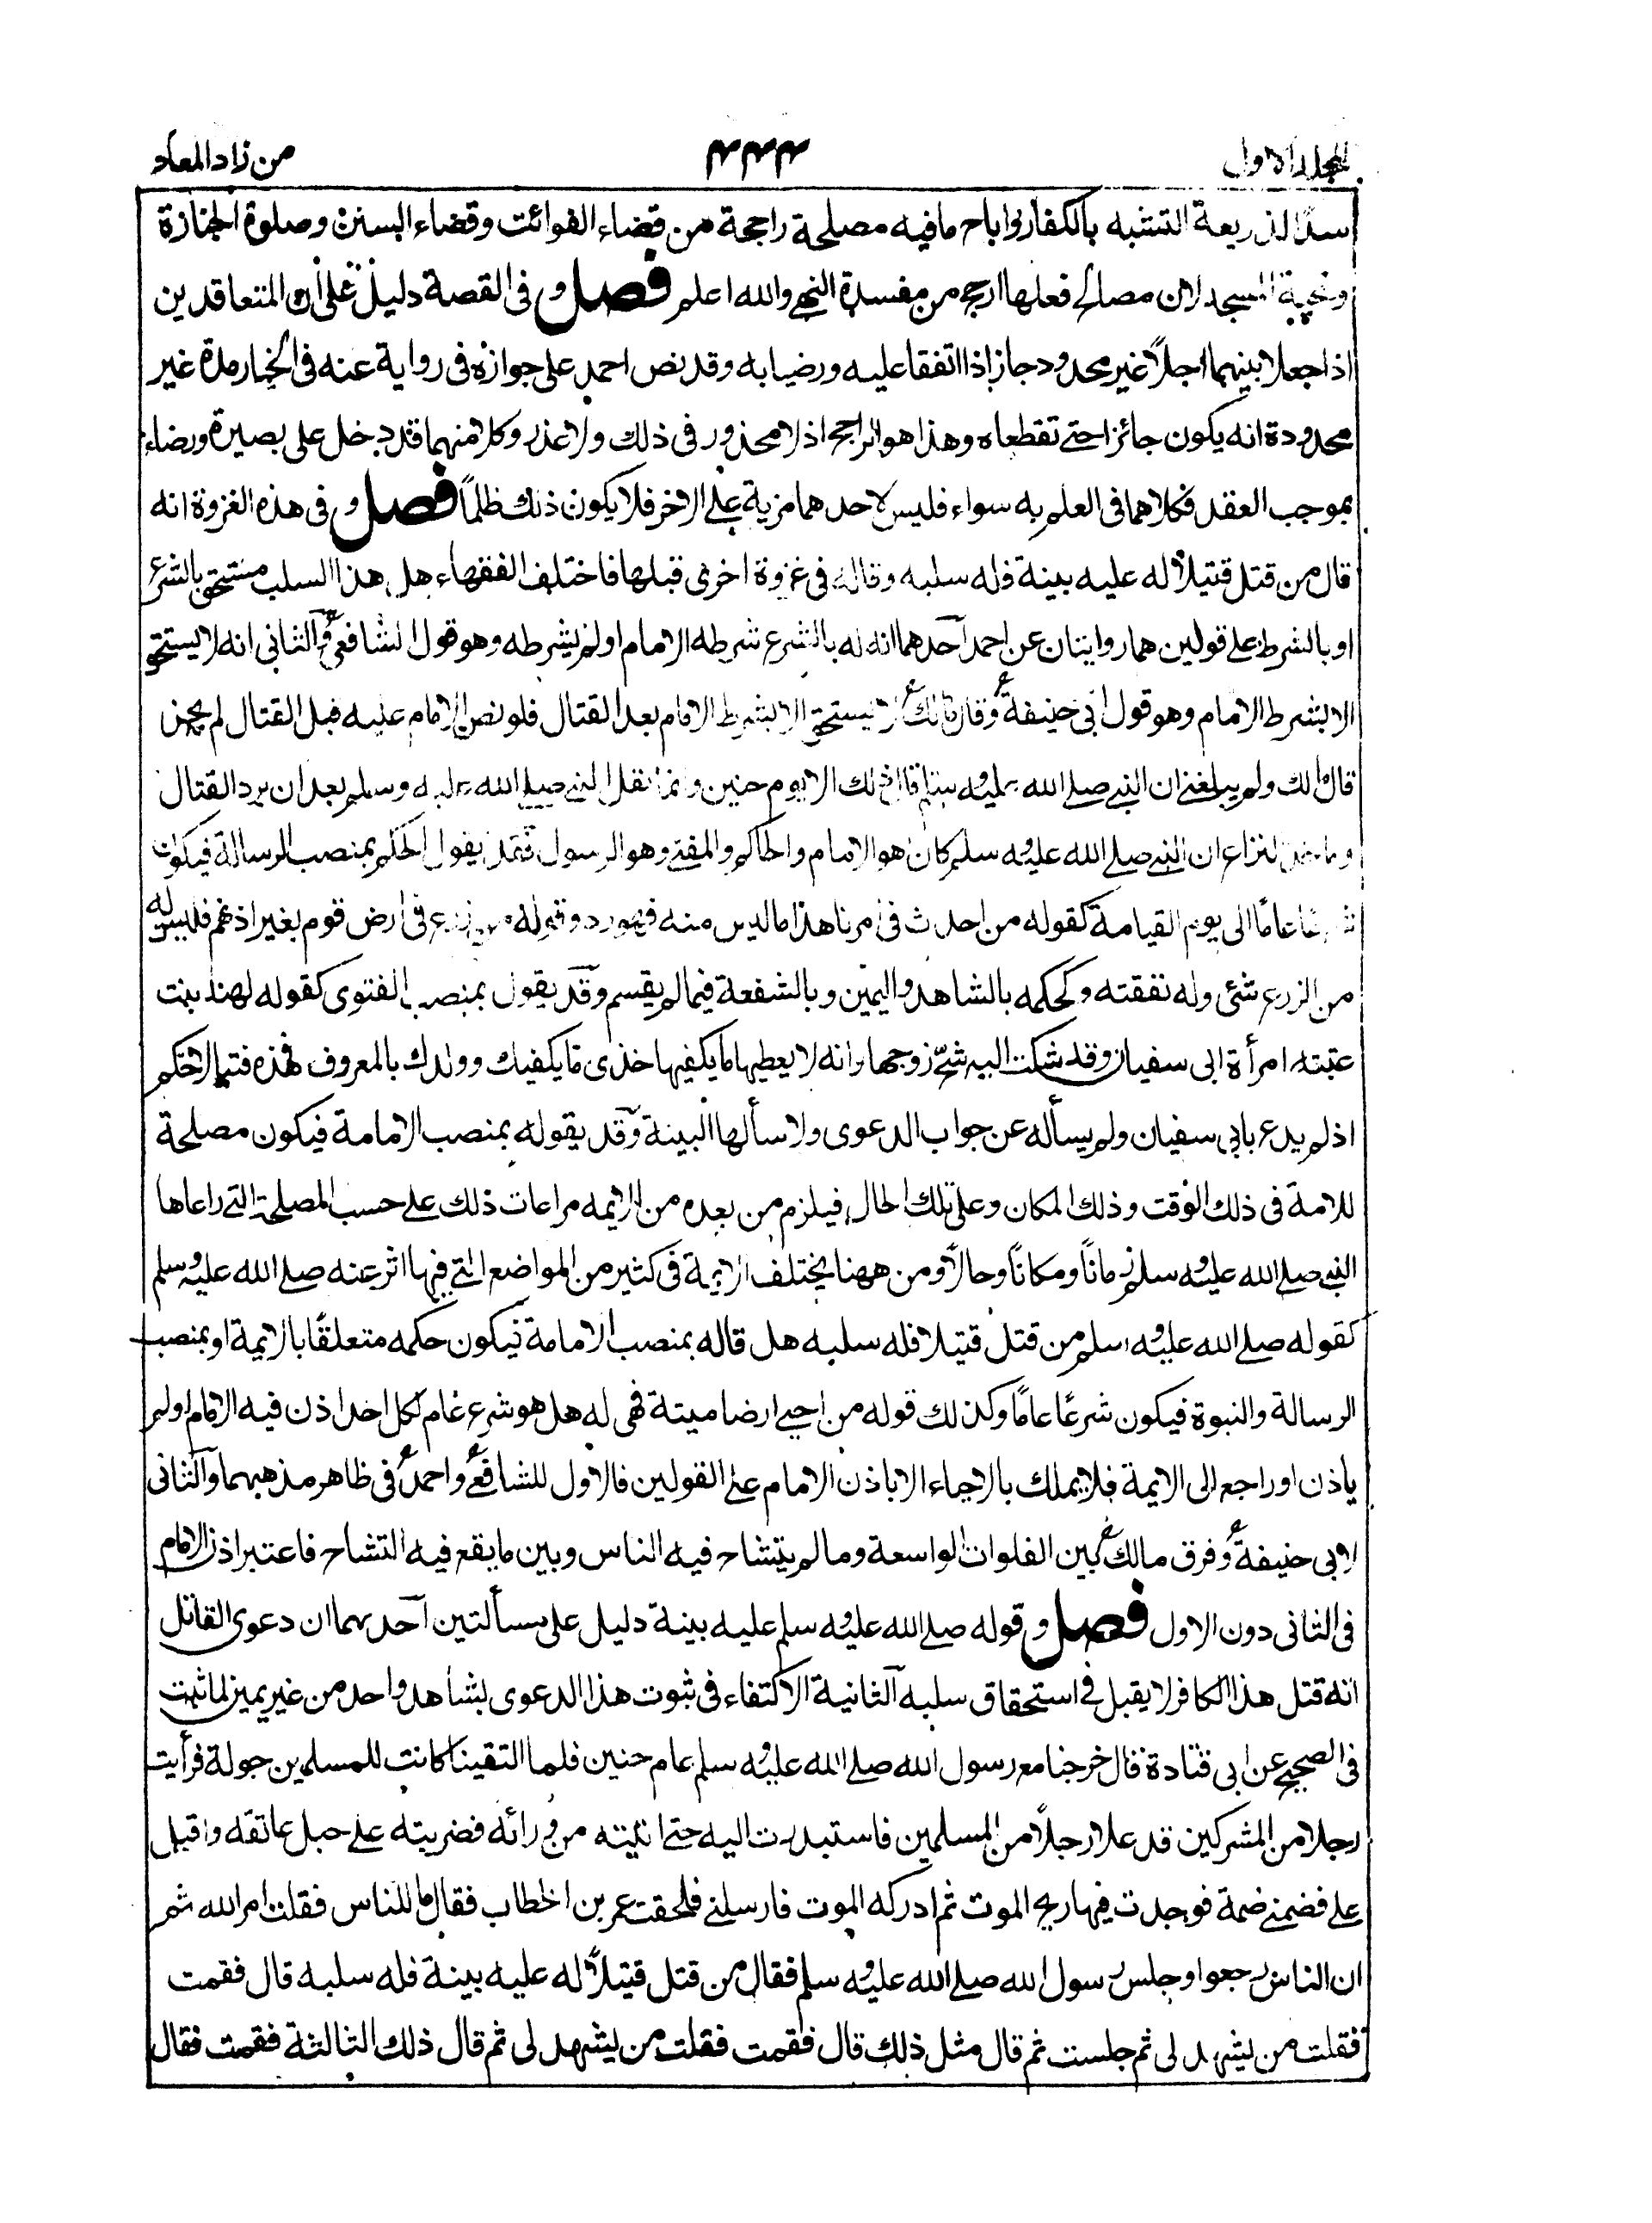 المجلد الاول ٤٤٤ من زاد المعاد
سدا لذريعة التشبه بالكفار واباح ما فيه مصلحة راجحة من قضاء الفوائت وقضاء السنن وصلوة الجنازة
وتحية المسجد لان مصالح فعلها ارجح من مفسدة النهى والله اعلم فصل و فى القصة دليل على أن المتعاقدين
اذا جعلا بينهما اجلاً غير محدود جاز اذا اتفقا عليه ورضيا به وقد نص احمد على جوازه فى رواية عنه فى الخيار مدة غير
محدودة انه يكون جائزا حتى تقطعاه وهذا هو الراجح اذ لا محذور فى ذلك ولا عذر وكلا منهما قد دخل على بصيرة ورضاء
بموجب العقد فكلاهما فى العلم به سواء فليس لاحدهما مزية على الاخر فلا يكون ذلك ظلماً فصل و فى هذه الغزوة انه
قال من قتل قتيلاً له عليه بينة فله سلبه وقاله فى غزوة اخرى قبلها فاختلف الفقهاء هل هذا السلب مستحق بالشرع
او بالشرط على قولين هما روايتان عن احمد آحدهما انه له بالشرع شرطه الامام او لم يشرطه وهو قول الشافعى والثانى انه لا يستحق
الا بشرط الامام وهو قول ابى حنيفة وقال مالك لا يستحق الا بشرط الامام بعد القتال فلو نص الامام عليه قبل القتال لم يجز
قال مالك ولم يبلغنى ان النبى صلى الله عليه وسلم قال ذلك الا يوم حنين وانما نفل النبى صلى الله عليه وسلم بعد ان برد القتال
وماخذ النزاع ان النبى صلى الله عليه وسلم كان هو الامام والحاكم والمفتى وهو الرسول فقد يقول الحكم بمنصب الرسالة فيكون
شرعا عامًا الى يوم القيامة كقوله من احدث فى امرنا هذا ما ليس منه فهو رد وقوله من زرع فى ارض قوم بغير اذنهم فليس له
من الزرع شئ وله نفقته وكحكمه بالشاهد واليمين وبالشفعة فيما لم يقسم وقد يقول بمنصب الفتوى كقوله لهند بنت
عتبته امرأة ابى سفيان وقد شكت اليه شحّ زوجها وانه لا يعطيها ما يكفيها خذى ما يكفيك وولدك بالمعروف فهذه فتيا لا حكم
اذ لم يدع بابى سفيان ولم يسأله عن جواب الدعوى ولا سألها البينة وقد يقوله بمنصب الامامة فيكون مصلحة
للامة فى ذلك الوقت وذلك المكان وعلى تلك الحال فيلزم من بعده من الائمه مراعات ذلك على حسب المصلحة التى راعاها
النبى صلى الله عليه وسلم زمانًا ومكانًا وحالاً ومن ههنا يختلف الايمة فى كثير من المواضع التى فيها اثر عنه صلى الله عليه وسلم
كقوله صلى الله عليه وسلم من قتل قتيلا فله سلبه هل قاله بمنصب الامامة فيكون حكمه متعلقًا بالايمة او بمنصب
الرسالة والنبوة فيكون شرعًا عامًا وكذلك قوله من احيى ارضا ميتة فهى له هل هو شرع عام لكل احد اذن فيه الامام او لم
ياذن او راجع الى الايمة فلا يملك بالاحياء الا باذن الامام على القولين فالاول للشافعى واحمد فى ظاهر مذهبهما والثانى
لابى حنيفة وفرق مالك بين الفلوات الواسعة وما لم يتشاح فيه الناس وبين ما يقع فيه التشاح فاعتبر اذن الامام
فى الثانى دون الاول فصل و قوله صلى الله عليه وسلم عليه بينة دليل على مسألتين آحديهما ان دعوى القاتل
انه قتل هذا الكافر لا يقبل فى استحقاق سلبه آلثانية الاكتفاء فى ثبوت هذا الدعوى بشاهد واحد من غير يمين لما ثبت
فى الصحيح عن ابى قتادة قال خرجنا مع رسول الله صلى الله عليه وسلم عام حنين فلما التقينا كانت للمسلمين جولة فرأيت
رجلا من المشركين قد علا رجلاً من المسلمين فاستبدرت اليه حتى اتيته من ورائه فضربته على حبل عاتقه واقبل
على فضمنى ضمة فوجدت فيها ريح الموت ثم ادركه الموت فارسلنى فلحقت عمر بن الخطاب فقال ما للناس فقلت امر الله ثم
ان الناس رجعوا وجلس رسول الله صلى الله عليه وسلم فقال من قتل قتيلاً له عليه بينة فله سلبه قال فقمت
فقلت من يشهد لى ثم جلست ثم قال مثل ذلك قال فقمت فقلت من يشهد لى ثم قال ذلك الثالثة فقمت فقال